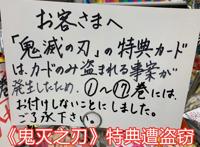 お客さまへ
「鬼滅の刃」の特典カード
は、カードのみ盗まれる事案が
発生したため、①〜⑦巻には、
お付けしないことにしました。
ご了承下さい。
《鬼灭之刃》特典遭盗窃